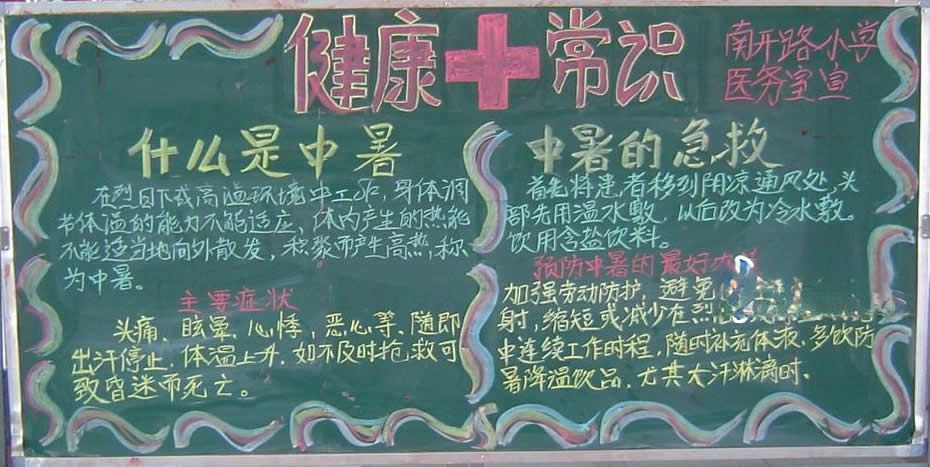 健康 常识
南开路小学
医务室宣
什么是中暑
在烈日下或高温环境中工作,身体调
节体温的能力不能适应,体内产生的热能
不能适当地向外散发,积聚而产生高热,称
为中暑。
主要症状
头痛、眩晕、心悸,恶心等、随即
出汗停止、体温上升、如不及时抢救可
致昏迷而死亡。
中暑的急救
首先将患者移到阴凉通风处,头
部先用温水敷,以后改为冷水敷。
饮用含盐饮料。
预防中暑的最好办
加强劳动防护,避免
身时,缩短或减少在烈
中连续工作时程,随时补充体液,多饮防
暑降温饮品,尤其大汗淋漓时.